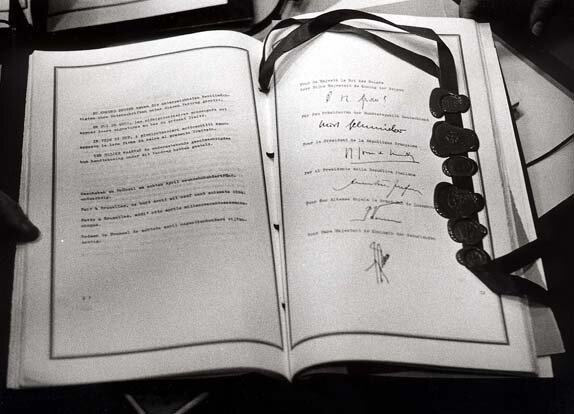 ZU URKUND DESSEN haben die unterzeichneten Bevollmäch-
tigten ihre Unterschriften unter diesen Vertrag gesetzt.
EN FOI DE QUOI, les plénipotentiaires soussignés ont
apposé leurs signatures au bas du présent Traité.
IN FEDE DI CHE, i plenipotenziari sottoscritti hanno
apposto le loro firme in calce al presente trattato.
TEN BLIJKE WAARVAN de ondergetekende gevolmachtigden
hun handtekening onder dit Verdrag hebben gesteld.
Geschehen zu Brüssel am achten April neunzehnhundertfünf-
undsechzig.
Fait à Bruxelles, le huit avril mil neuf cent soixante-cinq.
Fatto a Bruxelles, addì otto aprile millenovecentosessanta-
cinque.
Gedaan te Brussel de achtste april negentienhonderd vijfen-
zestig.
Pour Sa Majesté le Roi des Belges
Voor Zijne Majesteit de Koning der Belgen
Für den Präsidenten der Bundesrepublik Deutschland
Kurt Schmücker
Pour le Président de la République Française
Per il Presidente della Repubblica Italiana
Pour Son Altesse Royale le Grand-Duc de Luxembourg
Voor Hare Majesteit de Koningin der Nederlanden